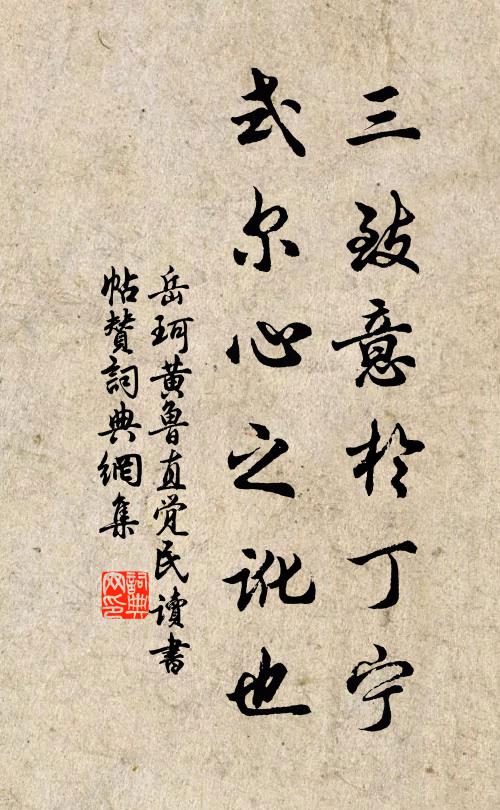 三致意于丁宁
式尔心之讹也
岳珂黄鲁直觉民读书
帖赞词典網集
詞典网印